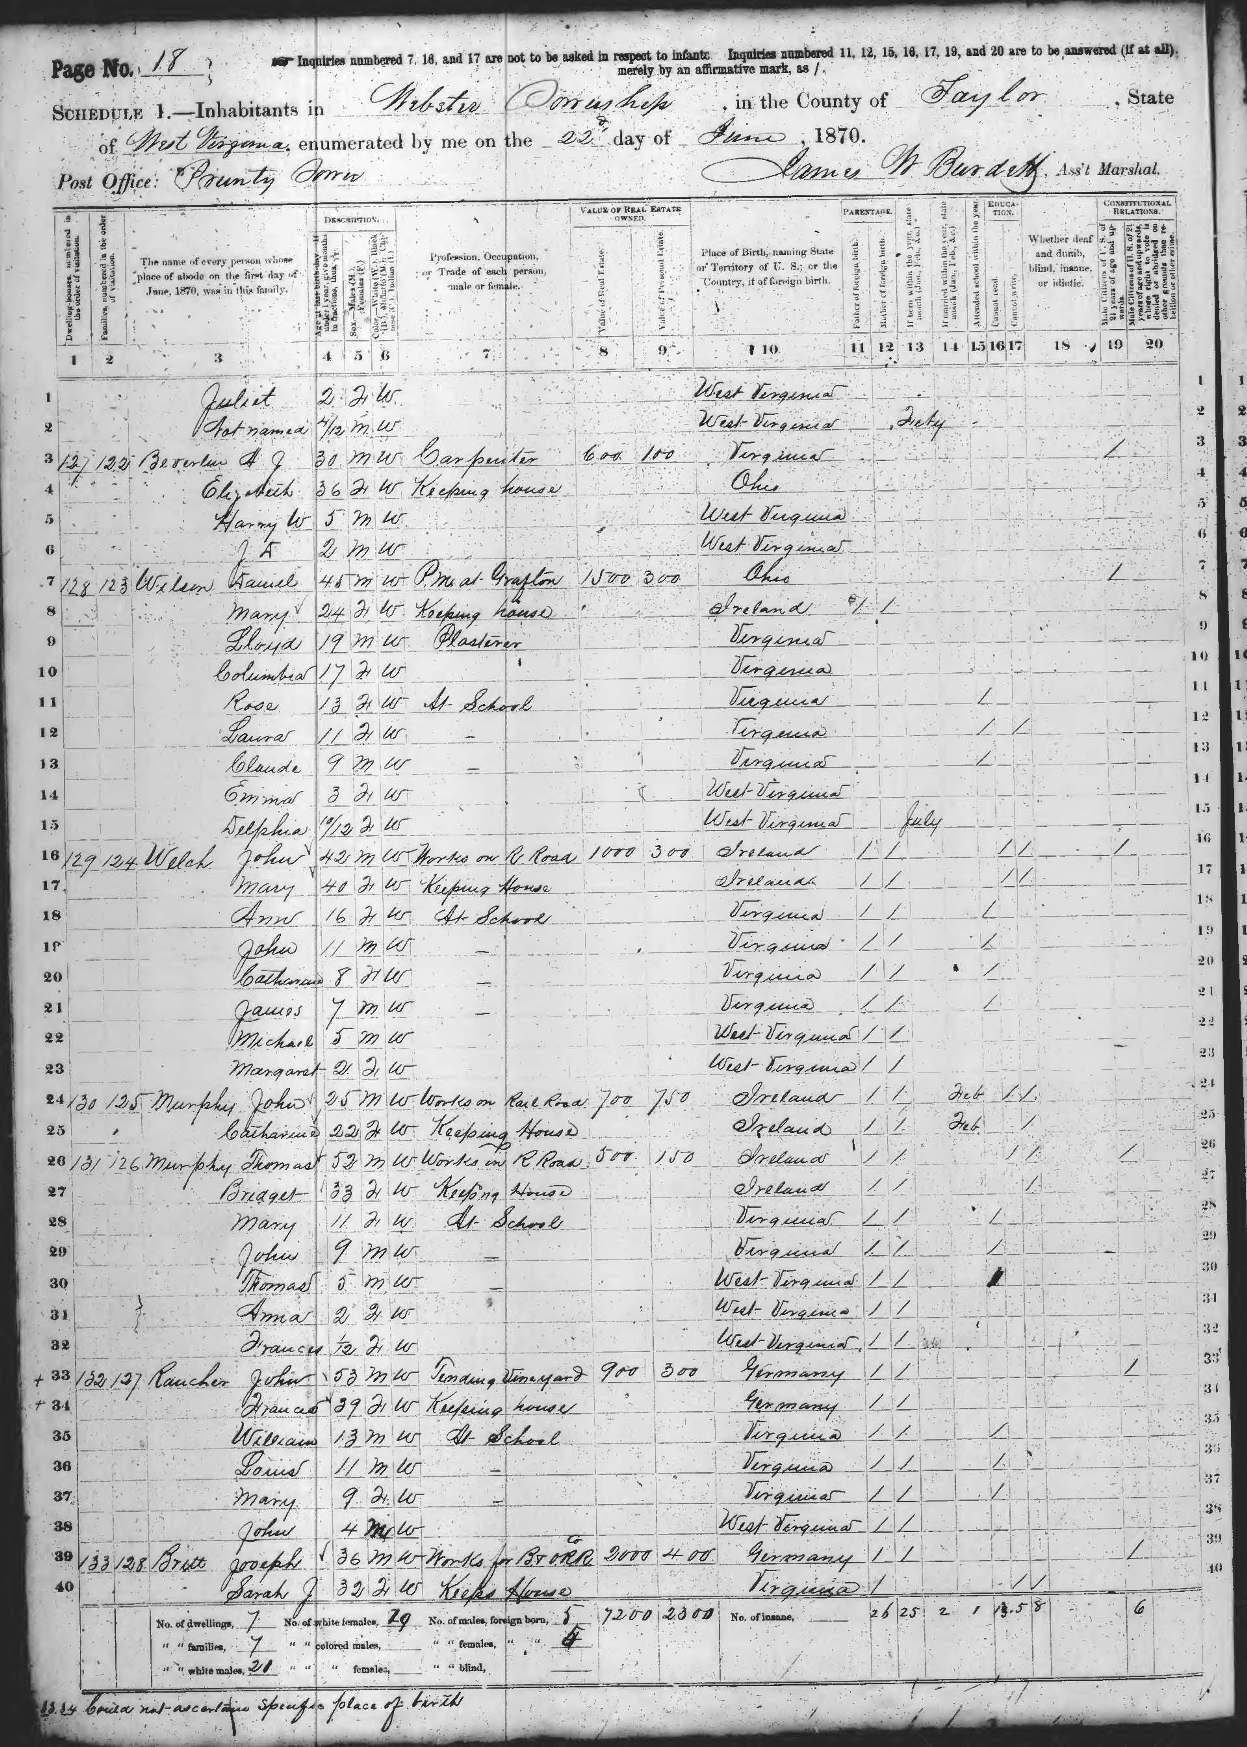 Page No. 18
Inquiries numbered 7, 16, and 17 are not to be asked in respect to infants. Inquiries numbered 11, 12, 15, 16, 17, 19, and 20 are to be answered (if at all)
merely by an affirmative mark, as /.
SCHEDULE 1.—Inhabitants in Webster Township, in the County of Taylor, State
of West Virginia, enumerated by me on the 22d day of June, 1870.
Post Office: Prunty Town
James W Burdett, Ass't Marshal.
Dwelling-houses, numbered in the order of visitation.
Families, numbered in the order of visitation.
The name of every person whose place of abode on the first day of June, 1870, was in this family.
DESCRIPTION.
Age at last birth-day. If under 1 year, give months in fractions, thus
Sex.—Males (M.), Females (F.)
VALUE OF REAL ESTATE OWNED.
Profession, Occupation, or Trade of each person, male or female.
Value of Real Estate.
Value of Personal Estate.
Place of Birth, naming State or Territory of U. S.; or the Country, if of foreign birth.
PARENTAGE.
Father of foreign birth.
Mother of foreign birth.
EDUCATION.
Attended school within the year.
Cannot read.
Cannot write.
Whether deaf and dumb, blind, insane, or idiotic.
CONSTITUTIONAL RELATIONS.
1 2 3 4 5 6 7 8 9 10 11 12 13 14 15 16 17 18 19 20
1 Juliet 2 F W West Virginia 1
2 Not named /12 M W West Virginia 2
3 127 122 A J 30 M W Carpenter 600 100 Virginia / 3
4 Elizabeth 36 F W Keeping house Ohio 4
5 Harry W 5 M W West Virginia 5
6 J 2 M W West Virginia 6
7 128 123 Wilson Daniel 45 M W P.M. at Grafton 1500 300 Ohio / 7
8 Mary 24 F W Keeping house Ireland / / 8
9 Lloyd 19 M W Plasterer Virginia 9
10 Columbia 17 F W Virginia 10
11 Rose 13 F W At School Virginia / 11
12 Laura 11 F W – Virginia / / 12
13 Claude 9 M W – Virginia / 13
14 Emma 3 F W West Virginia 14
15 Delphia 10/12 F W West Virginia July 15
16 129 124 Welch John 42 M W Works on R Road 1000 300 Ireland / / / / / 16
17 Mary 40 F W Keeping House Ireland / / / / 17
18 Ann 16 F W At School Virginia / / / 18
19 John 11 M W – Virginia / / / 19
20 Catharine 8 F W – Virginia / / / 20
21 James 7 M W – Virginia / / / 21
22 Michael 5 M W West Virginia / / 22
23 Margaret 2 F W West Virginia / / 23
24 130 125 Murphy John 25 M W Works on Rail Road 700 750 Ireland / / Feb / / 24
25 Catharine 22 F W Keeping House Ireland / / Feb / 25
26 131 126 Murphy Thomas 52 M W Works on R Road 500 150 Ireland / / / / / 26
27 Bridget 33 F W Keeping House Ireland / / / 27
28 Mary 11 F W At School Virginia / / / 28
29 John 9 M W – Virginia / / / 29
30 Thomas 5 M W – West Virginia / / / 30
31 Anna 2 F W West Virginia / / 31
32 Frances 1/12 F W West Virginia / / 32
+ 33 132 127 Raucher John 53 M W Tending Vineyard 900 300 Germany / / / 33
+ 34 Frances 39 F W Keeping house Germany / / 34
35 William 13 M W At School Virginia / / / 35
36 Louis 11 M W – Virginia / / / 36
37 Mary 9 F W – Virginia / / / 37
38 John 4 M W West Virginia / / 38
39 133 128 Britt Joseph 36 M W Works for B & O RR Co 2000 400 Germany / / / 39
40 Sarah J 32 F W Keeps House Virginia / / / 40
No. of dwellings, 7 No. of white females, 19 No. of males, foreign born, 5 7200 2300 No. of insane, 26 25 2 1 5 8 6
" " families, 7 " " colored males, " " females, " "
" " white males, " " " females, " " blind,
33.34 Could not ascertain specific place of birth